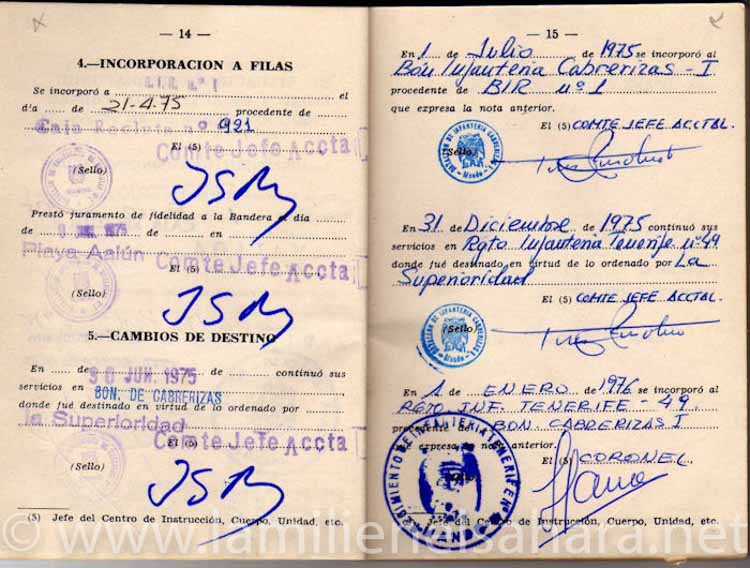 — 14 —
4.—INCORPORACION A FILAS
B.I.R. n.º 1
Se incorporó a el
día de 21-4-75 procedente de
Caja Recluta nº 921
El (5) Comte Jefe Accta
(Sello)
Prestó juramento de fidelidad a la Bandera el día
de JUN. 1975 de en
Playa Aaiún
El (5) Comte Jefe Accta
(Sello)
5.—CAMBIOS DE DESTINO
En de 30 JUN. 1975 de continuó sus
servicios en BON. DE CABRERIZAS
donde fué destinado en virtud de lo ordenado por
la Superioridad
El (5) Comte Jefe Accta
(Sello)
(5) Jefe del Centro de Instrucción, Cuerpo, Unidad, etc.
— 15 —
En 1 de Julio de 1975 se incorporó al
Bón Infantería Cabrerizas - I
procedente de BIR nº 1
que expresa la nota anterior.
El (5) COMTE JEFE ACCTAL.
(Sello)
BATALLON DE INFANTERIA CABRERIZAS I
Mando
En 31 de Diciembre de 1975 continuó sus
servicios en Rgto Infantería Tenerife nº 49
donde fué destinado en virtud de lo ordenado por La
Superioridad
El (5) COMTE JEFE ACCTAL.
(Sello)
BATALLON DE INFANTERIA CABRERIZAS I
Mando
En 1 de ENERO de 1976 se incorporó al
RGTO. INF. TENERIFE - 49
procedente de BON. CABRERIZAS I
que expresa la nota anterior.
El (5) CORONEL
REGIMIENTO DE INFANTERIA TENERIFE Nº
MANDO
(5) Jefe del Centro de Instrucción, Cuerpo, Unidad, etc.
© www.lamilienelsahara.net